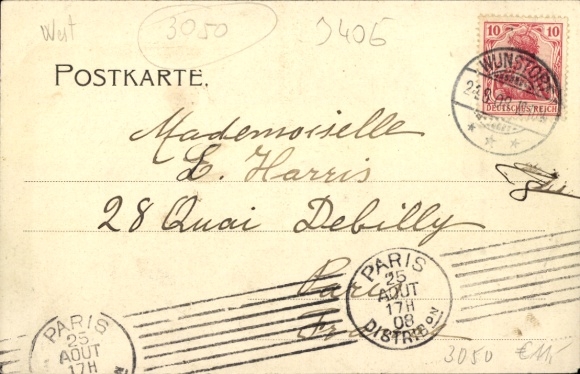 West
3050
3406
10 10
DEUTSCHES REICH
WUNSTORF
POSTKARTE.
Mademoiselle
L. Harris
28 Quai Debilly
Paris
France
PARIS
25
AOUT
17H
08
DISTRIBON
PARIS
25
AOUT
17H
3050